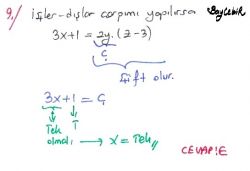 9/ İçler-dışlar çarpımı yapılırsa
3x+1 = 2y.(z-3)
Ç
Çift olur.
3x+1 = Ç
Tek T
olmalı → x = Tek//
CEVAP:E